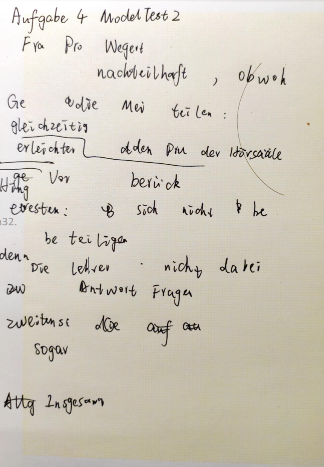 Aufgabe 4 ModelTest 2
Fra Pro Wegert
nachteilhaft, obwoh
Ge die Mei teilen:
gleichzeitig
erleichter den Dru der Hörsääle
ge Vor berück
ersten: sich nicht be
be teiligen
denn
Die Lehrer nicht dabei
zu Antwort Fragen
zweitens: die auf
sogar
Insgesam